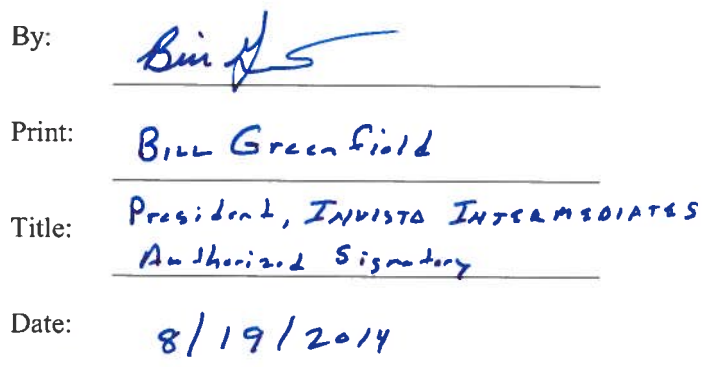 By: Bill
Print: Bill Greenfield
Title: President, INVISTA INTERMEDIATES
Authorized Signatory
Date: 8/19/2014